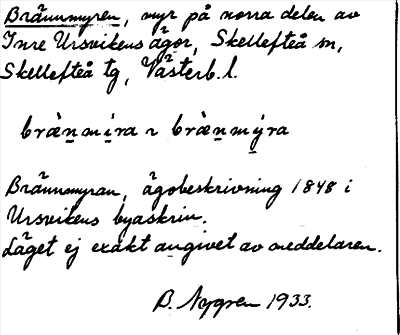 Brännmyren, myr på norra delen av
Inre Ursvikens ägor, Skellefteå sn,
Skellefteå tg, Västerb. l.
bràn̲mi̲ra ~ bràn̲mý̲ra
Brännmyran, ägobeskrivning 1848 i
Ursvikens byaskrin.
Läget ej exakt angivet av meddelaren.
B. Nygren 1933.